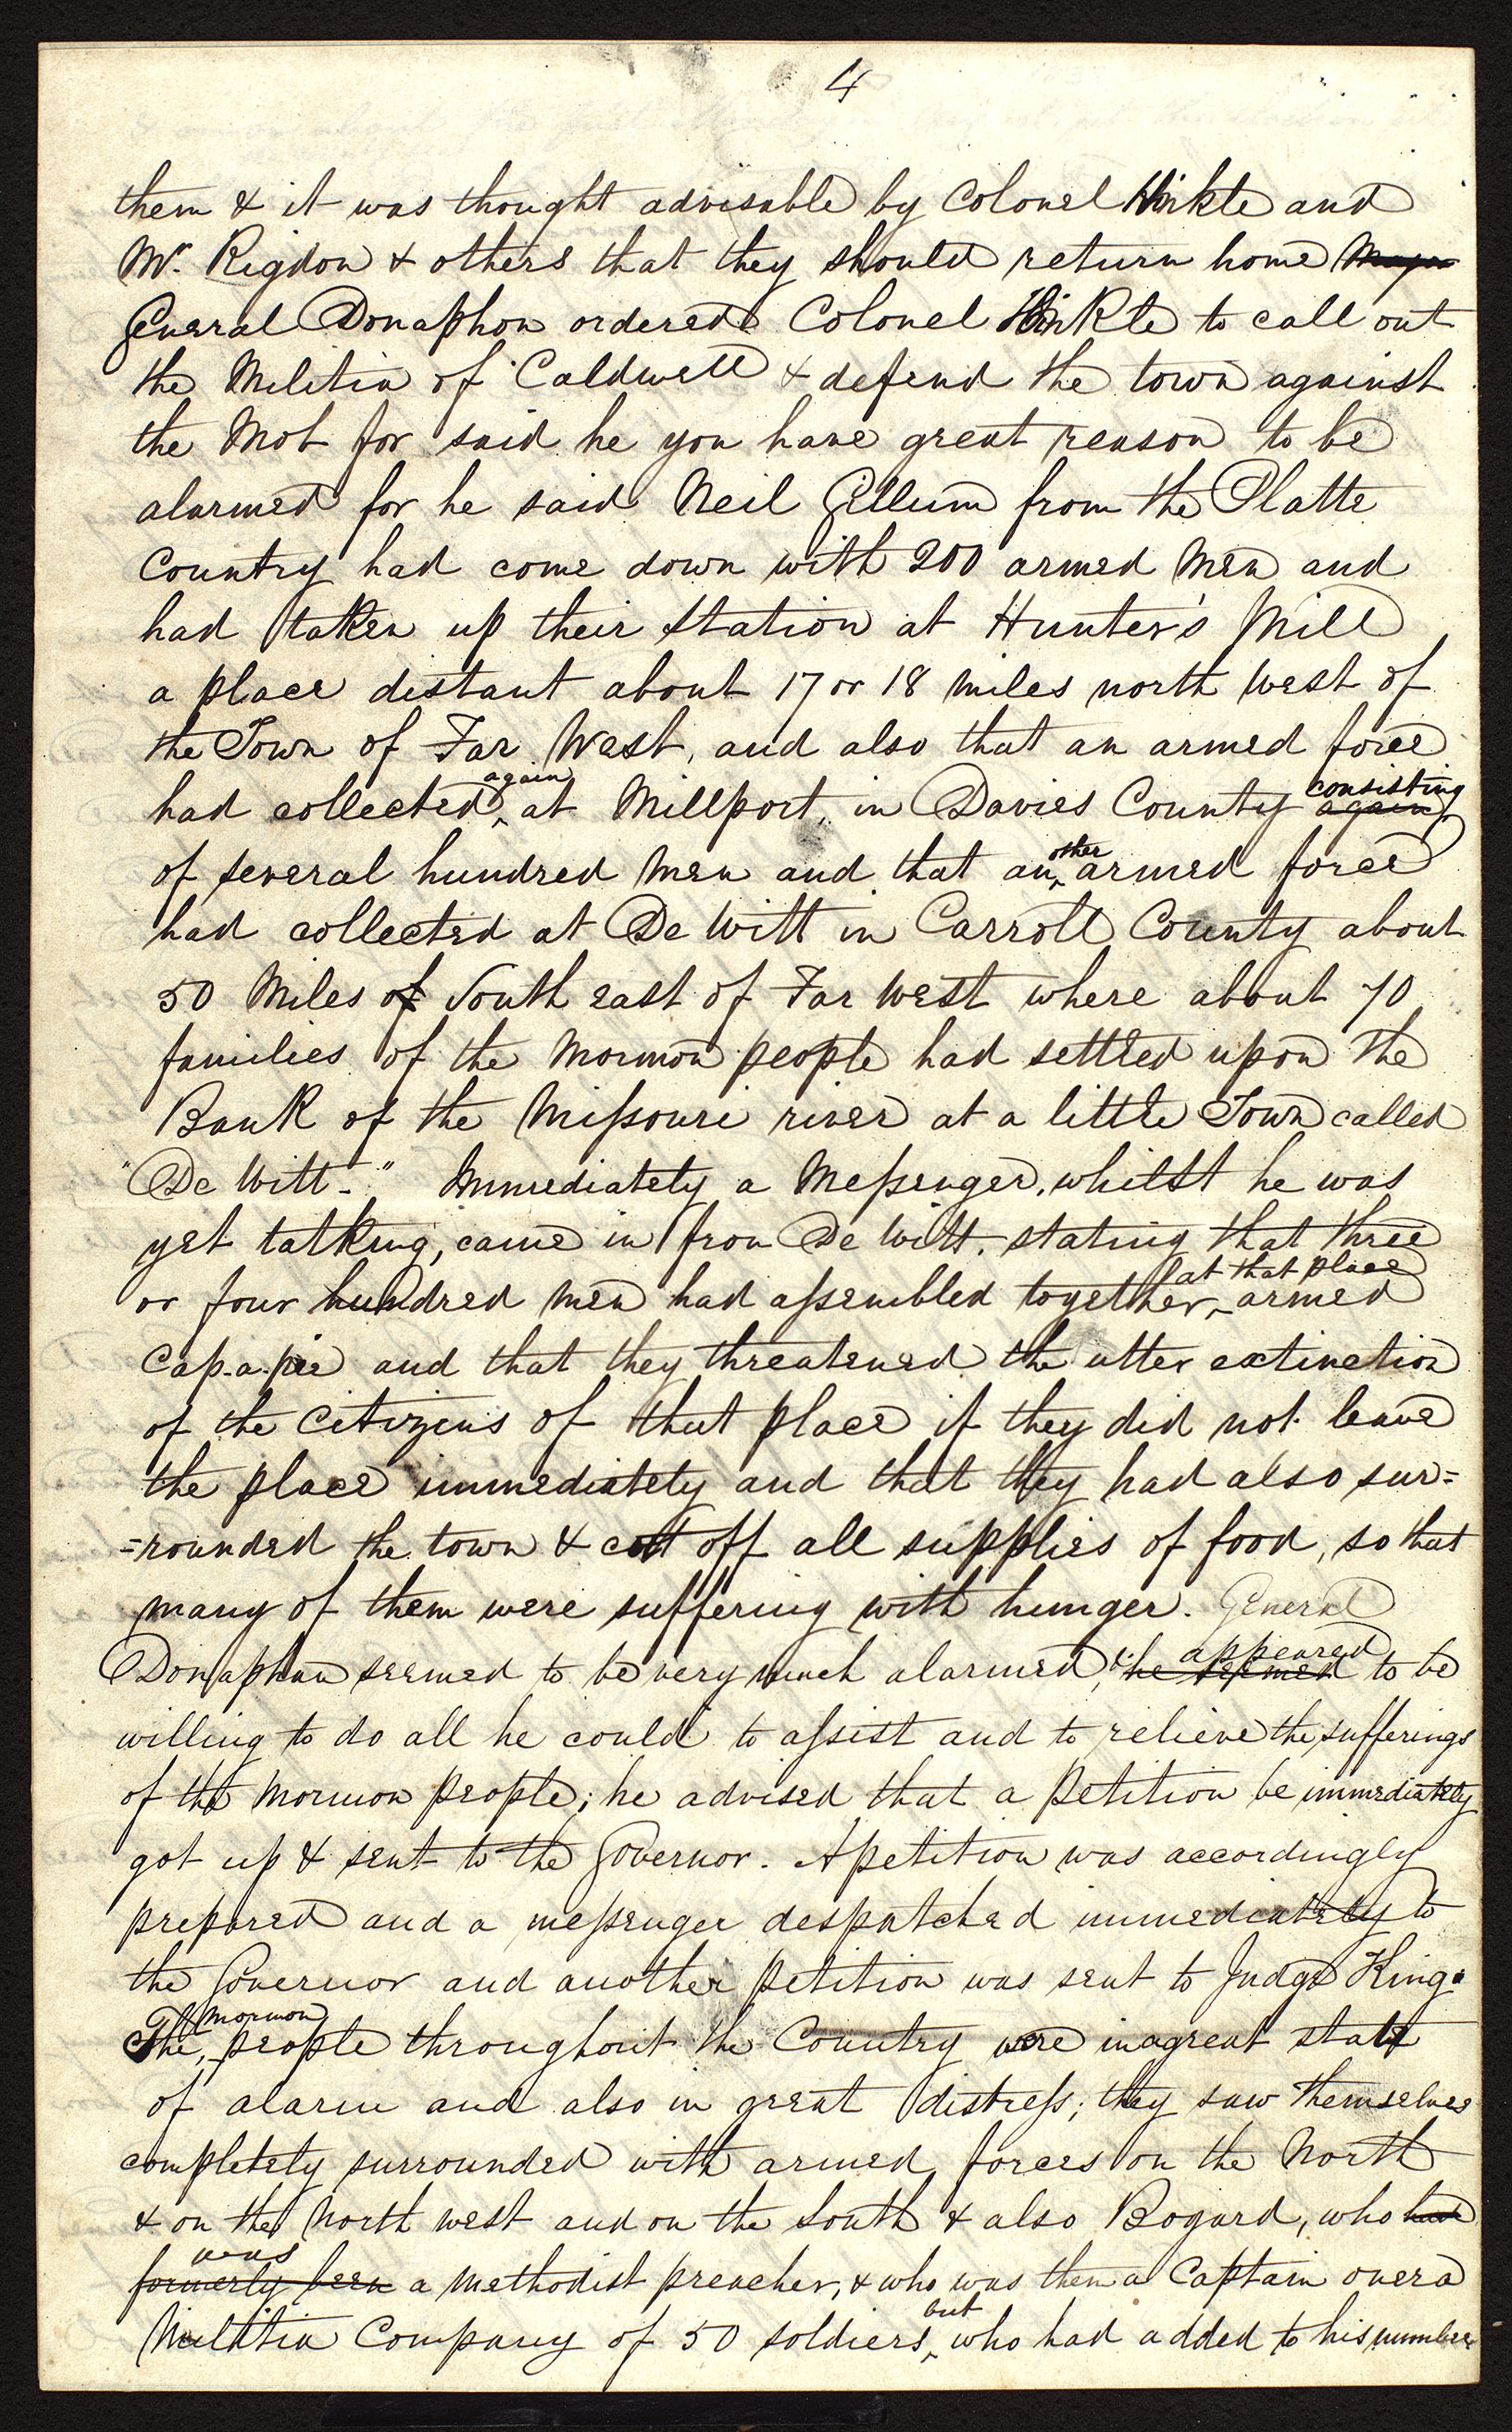 4
them & it was thought advisable by Colonel Hinkle and
Mr. Rigdon & others that they should return home Major
General Donaphon ordered Colonel Hinkle to call out
the Militia of Caldwell & defend the town against
the Mob for said he you have great reason to be
alarmed for he said Neil Gillum from the Platte
Country had come down with 200 armed Men and
had taken up their station at Hunter's Mill
a place distant about 17 or 18 miles north west of
the Town of Far West, and also that an armed force
had collected again at Millport, in Davies County again consisting
of several hundred Men and that another armed force
had collected at De Witt in Carroll County about
50 Miles of South east of Far West where about 70
families of the Mormon people had settled upon the
Bank of the Missouri river at a little Town called
"De Witt-." Immediately a Messenger, whilst he was
yet talking, came in from De Witt, stating that three
or four hundred Men had assembled together at that place armed
Cap-a-pie and that they threatened the utter extinction
of the Citizens of that place if they did not leave
the place immediately and that they had also sur=
=rounded the town & cut off all supplies of food, so that
many of them were suffering with hunger. General
Donaphan seemed to be very much alarmed, & he seemed appeared to be
willing to do all he could to assist and to relieve the sufferings
of the Mormon people; he advised that a petition be immediately
got up & sent to the Governor. A petition was accordingly
prepared and a messenger despatched immediately to
the Governor and another petition was sent to Judge King.
The Mormon people throughout the Country were in a great state
of alarm and also in great distress; they saw themselves
completely surrounded with armed forces on the North
& on the North west and on the South & also Bogard, who had
formerly been was a Methodist preacher, & who was then a Captain over a
Militia Company of 50 soldiers, but who had added to his number